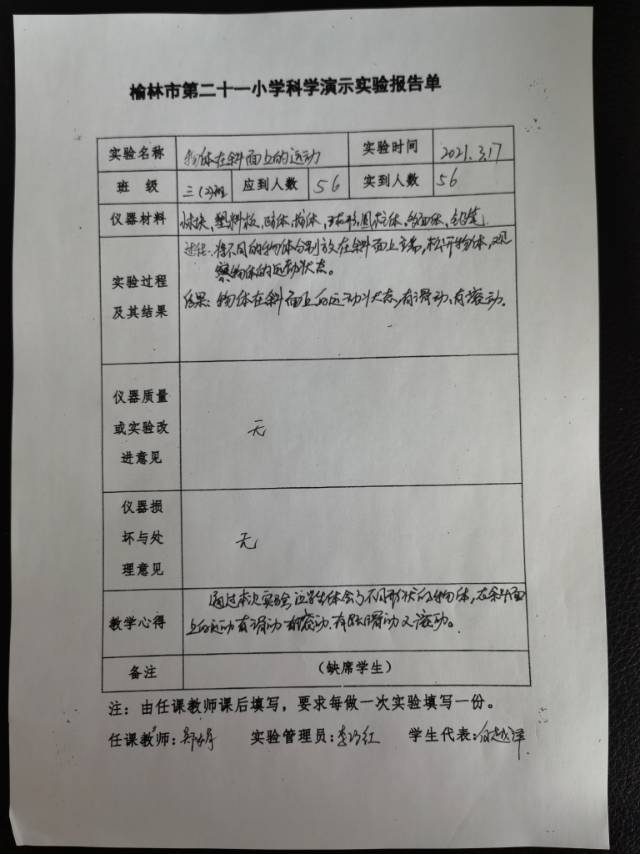 榆林市第二十一小学科学演示实验报告单
实验名称 物体在斜面上的运动 实验时间 2021.3.17
班 级 三(2)班 应到人数 56 实到人数 56
仪器材料 木块、塑料板、
实验过程及其结果 过程:将不同的物体分别放在斜面上端,松开物体,观
察物体的运动状态。
结果:物体在斜面上的运动状态,有滑动、有滚动。
仪器质量或实验改进意见 无
仪器损坏与处理意见 无
教学心得 通过本次实验,让学生体会了不同形状的物体,在斜面
上的运动有滑动、有滚动、有既滑动又滚动。
备注 (缺席学生)
注:由任课教师课后填写,要求每做一次实验填写一份。
任课教师: 实验管理员:李巧红 学生代表: